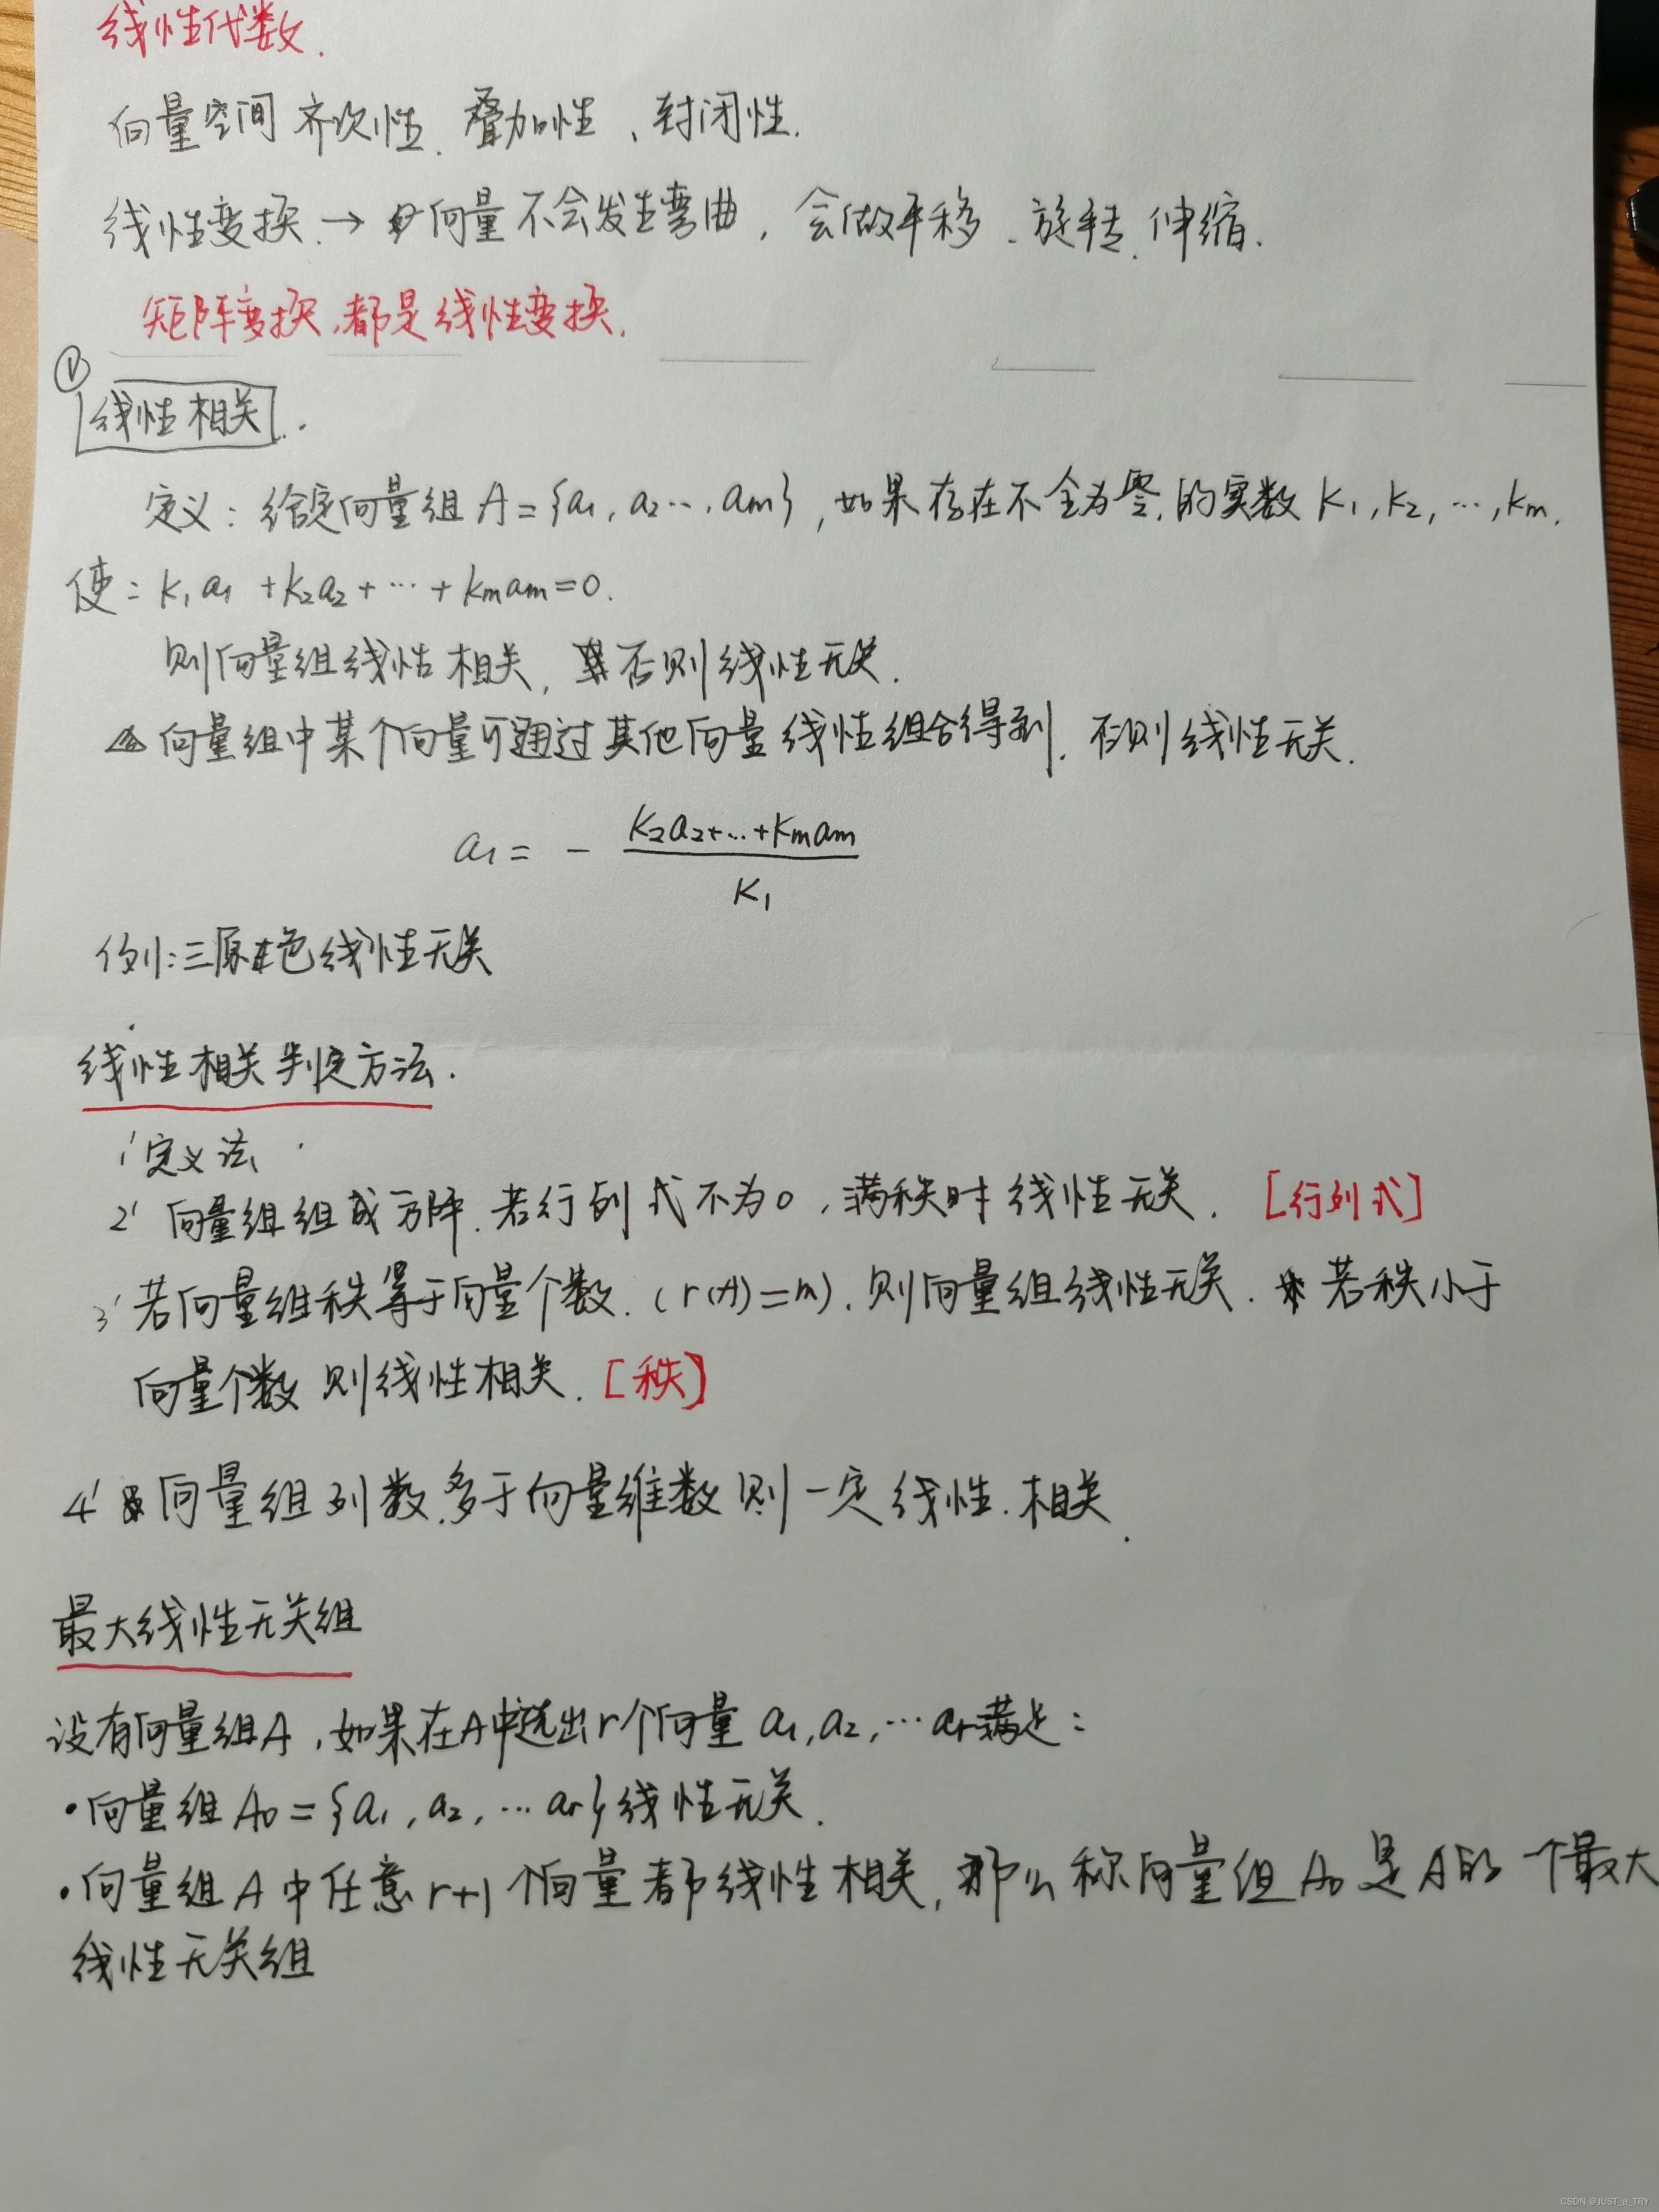 线性代数.
向量空间 齐次性、叠加性、封闭性.
线性变换 → 向量不会发生弯曲, 会做平移、旋转、伸缩.
矩阵变换,都是线性变换.
①
线性相关.
定义: 给定向量组 A = {a₁, a₂…, aₘ}, 如果存在不全为零,的实数 k₁, k₂, …, kₘ,
使: k₁a₁ + k₂a₂ + … + kₘaₘ = 0.
则向量组线性相关, 否则线性无关.
△ 向量组中某个向量可通过其他向量线性组合得到. 否则线性无关.
a₁ = - (k₂a₂+…+kₘaₘ)/k₁
例: 三原色线性无关
线性相关判定方法.
1' 定义法
2' 向量组组成方阵. 若行列式不为0, 满秩时线性无关. [行列式]
3' 若向量组秩等于向量个数. (r(A)=m). 则向量组线性无关. 若秩小于
向量个数则线性相关. [秩]
4' 向量组列数,多于向量维数则一定线性.相关.
最大线性无关组
设有向量组A, 如果在A中选出r个向量 a₁, a₂, … aᵣ满足:
•向量组A₀ = {a₁, a₂, … aᵣ}线性无关.
•向量组A中任意r+1个向量都线性相关, 那么称向量组A₀是A的一个最大
线性无关组
CSDN @JUST_a_TRY